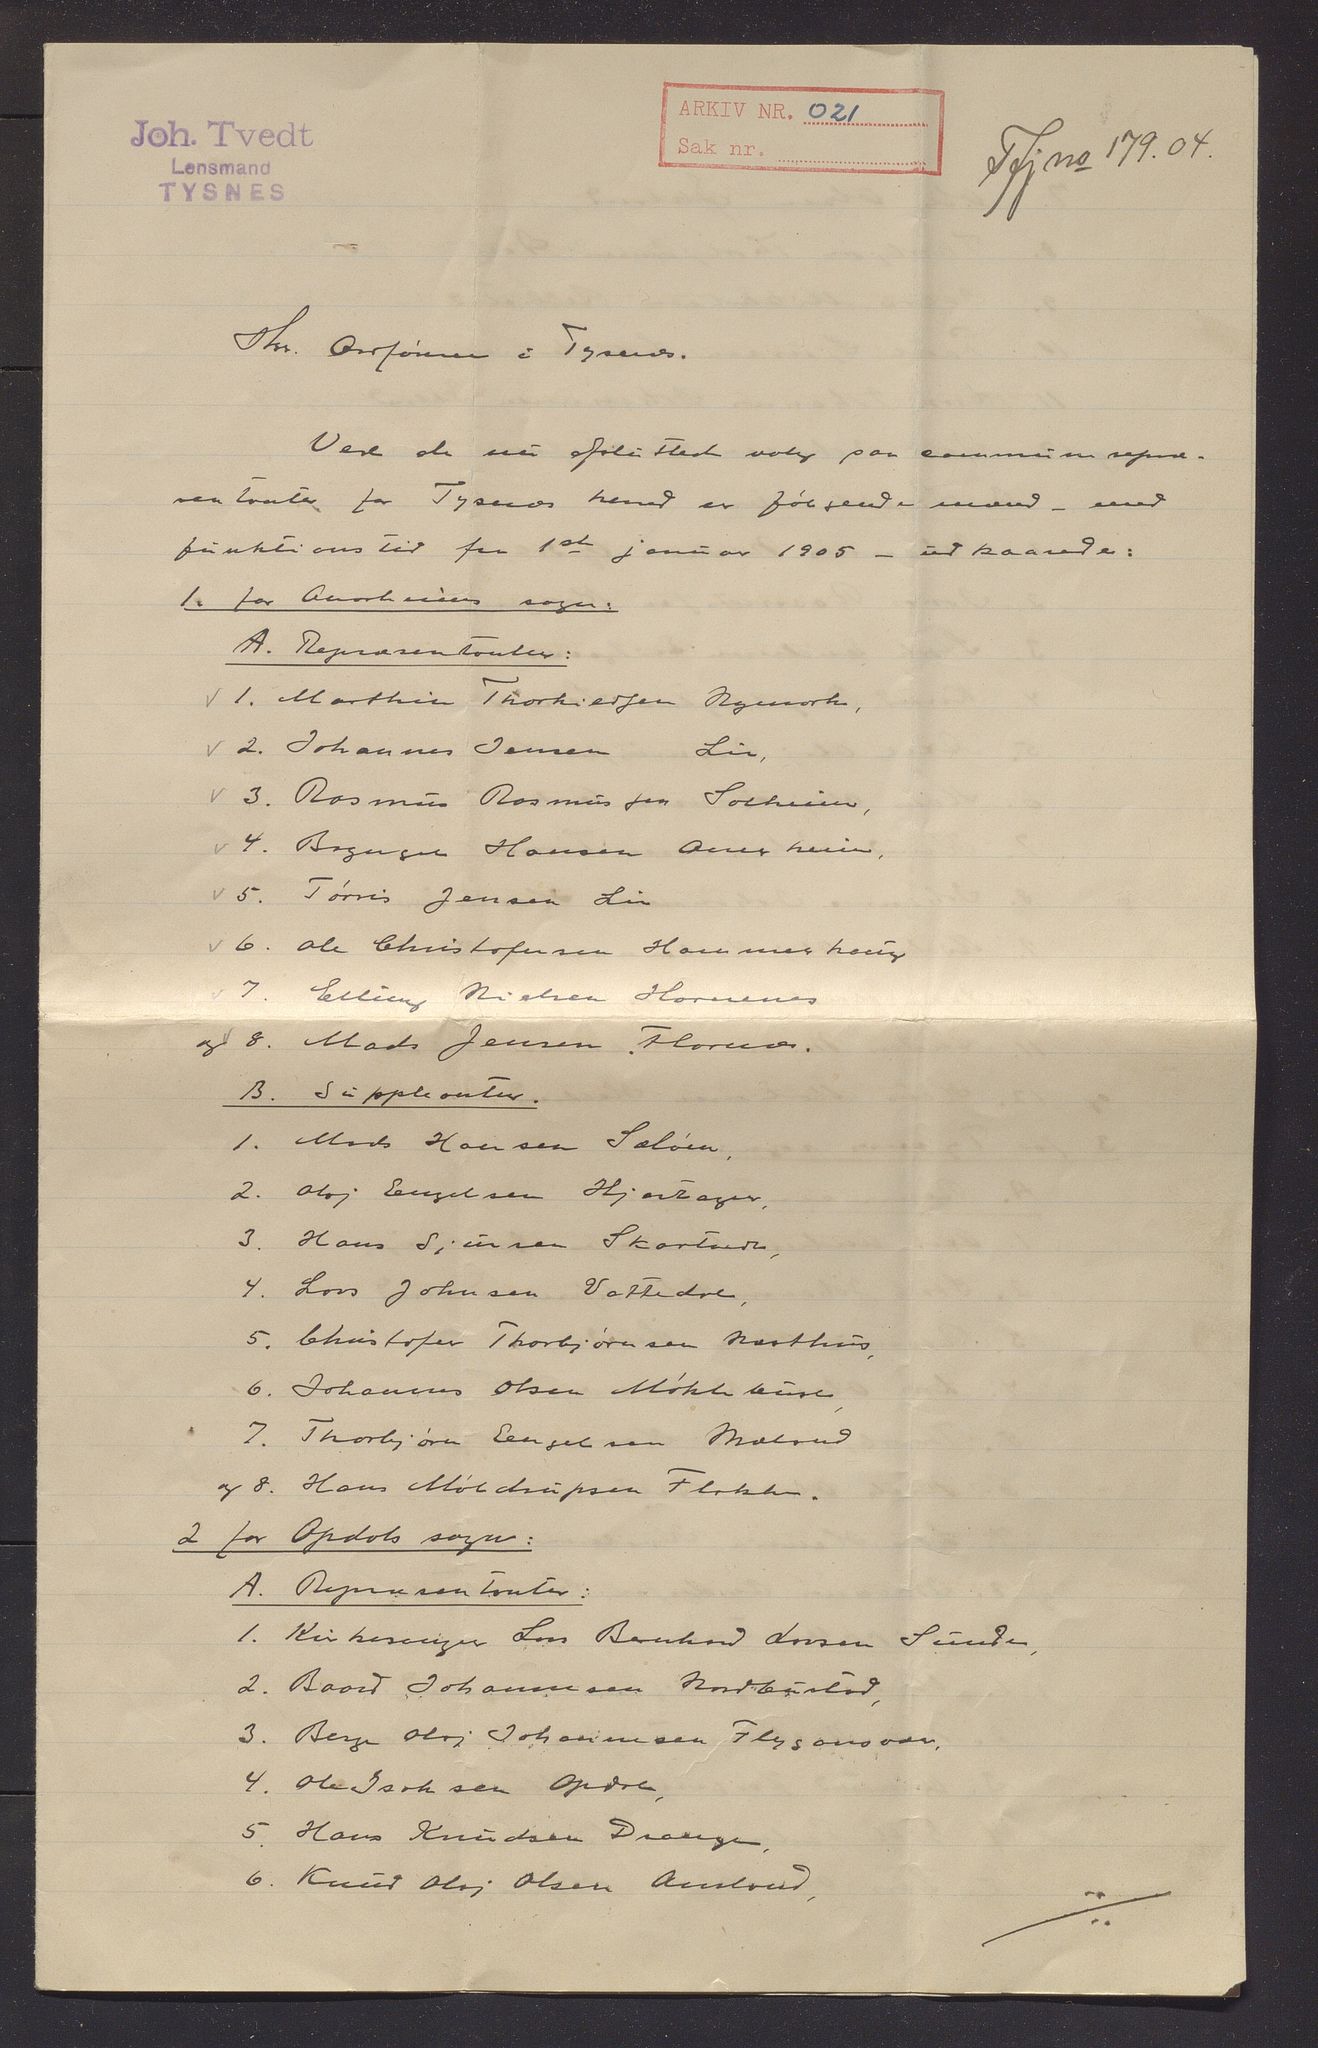 Joh. Tvedt
Lensmand
TYSNES
ARKIV NR. 021
Sak nr.
Tfj no 179.04.
Hr. Ordføreren i Tysnes.
Ved de nu afsluttede valg paa communerepræ-
sentanter for Tysnes herred er følgende mænd - med
funktionstid fra 1st januar 1905 - udkaarede:
1. for Onarheims sogn:
A. Repræsentanter:
1. Marthin Thorkildsen Nymark,
2. Johannes Jensen Lie,
3. Rasmus Rasmussen Solheim,
4. Brynjel Hansen Onarheim,
5. Tørris Jensen Lie
6. Ole Christofersen Hammerhaug
7. Elling Nielsen Hovenes
og 8. Mads Jensen Flornes.
B. Suppleanter.
1. Mads Hansen Sæløen,
2. Oluf Engelsen Hjartager,
3. Hans Sjursen Skartvedt,
4. Lars Johnsen Vattedal,
5. Christofer Thorbjørnsen Næsthus,
6. Johannes Olsen Møklebust,
7. Thorbjørn Engelsen Mæland
og 8. Hans Møldrupsen Flakke.
2 for Opdals sogn:
A. Repræsentanter:
1. Kirkesanger Lars Bernhard Larsen Sunde,
2. Baard Johannesen Nordbustad,
3. Berge Oluf Johannesen Flygansvær,
4. Ole Isaksen Opdal,
5. Hans Knudsen Drange,
6. Knud Oluf Olsen Amland,